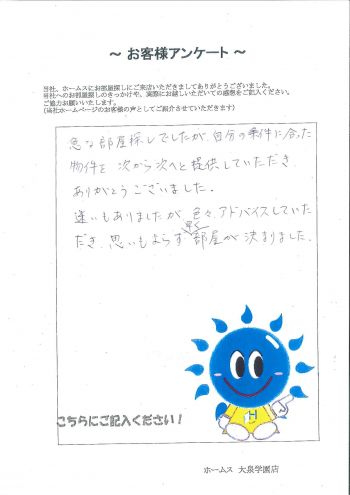 ～ お客様アンケート ～
当社、ホームスにお部屋探しにご来店いただきましてありがとうございました。
当社へのお部屋探しのきっかけや、実際にお越しいただいての感想をご記入ください。
ご協力お願いいたします。
(当社ホームページのお客様の声としてご紹介させていただきます)
急な部屋探しでしたが、自分の条件に合った
物件を次から次へと提供していただき
ありがとうございました。
迷いもありましたが、色々、アドバイスしていた
だき、思いもよらず早く部屋が決まりました。
H
こちらにご記入ください！
ホームス 大泉学園店